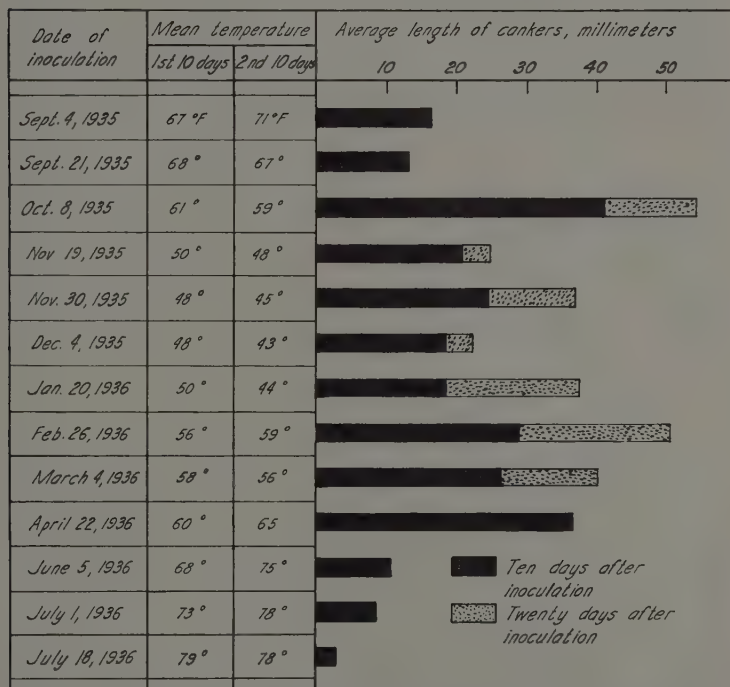 Date of inoculation Mean temperature Average length of cankers, millimeters
1st 10 days 2nd 10 days 10 20 30 40 50
Sept. 4, 1935 67 °F 71 °F
Sept. 21, 1935 68 ° 67 °
Oct. 8, 1935 61 ° 59 °
Nov 19, 1935 50 ° 48 °
Nov. 30, 1935 48 ° 45 °
Dec. 4, 1935 48 ° 43 °
Jan. 20, 1936 50 ° 44 °
Feb. 26, 1936 56 ° 59 °
March 4, 1936 58 ° 56 °
April 22, 1936 60 ° 65
June 5, 1936 68 ° 75 °
July 1, 1936 73 ° 78 °
July 18, 1936 79 ° 78 °
Ten days after
inoculation
Twenty days after
inoculation